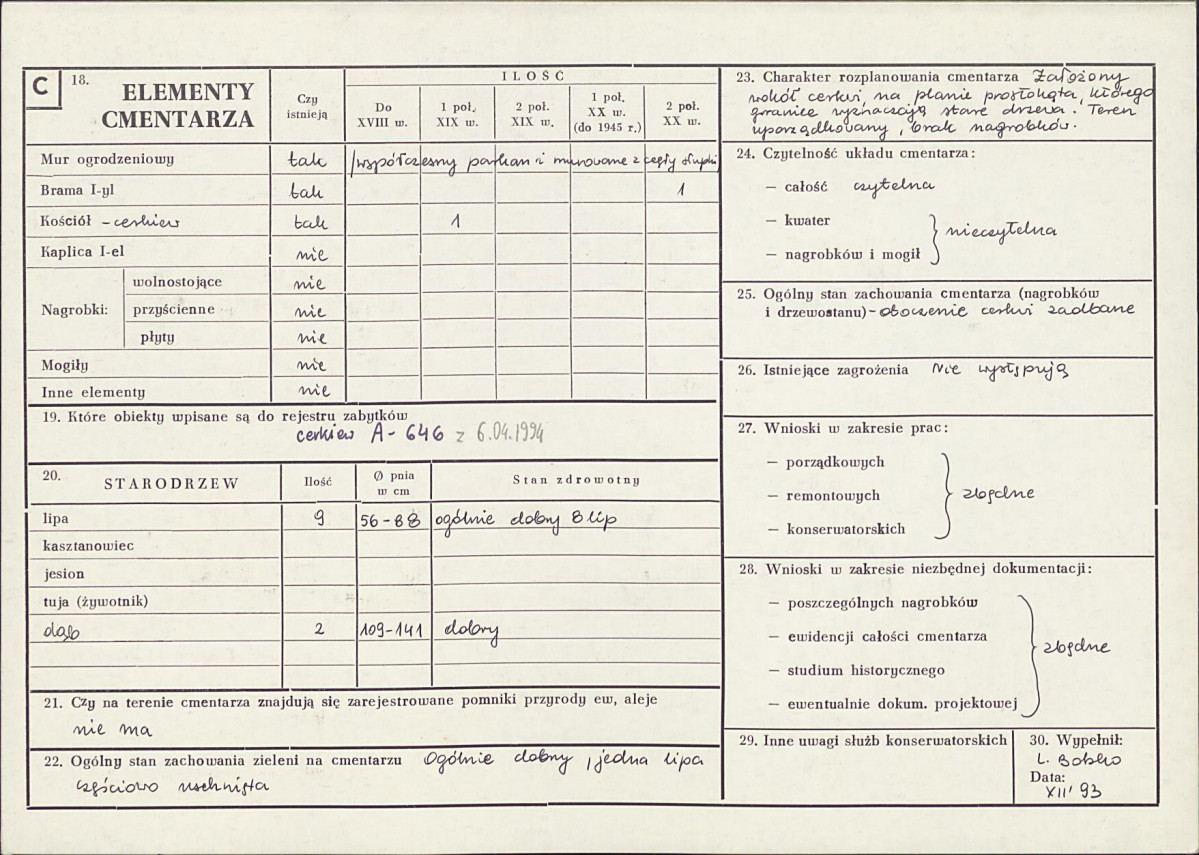 C
18. ELEMENTY
CMENTARZA
Czy
istnieją
ILOŚĆ
Do
XVIII w.
1 poł.
XIX w.
2 poł.
XIX w.
1 poł.
XX w.
(do 1945 r.)
2 poł.
XX w.
Mur ogrodzeniowy tak /współczesny parkan i murowane z cegły słupki/
Brama I-yl tak 1
Kościół - cerkiew tak 1
Kaplica I-el nie
Nagrobki:
wolnostojące nie
przyścienne nie
płyty nie
Mogiły nie
Inne elementy nie
19. Które obiekty wpisane są do rejestru zabytków
cerkiew A-646 z 6.04.1994
20. STARODRZEW
Ilość
Ø pnia
w cm
Stan zdrowotny
lipa 9 56-88 ogólnie dobry 8 lip
kasztanowiec
jesion
tuja (żywotnik)
dąb 2 109-141 dobry
21. Czy na terenie cmentarza znajdują się zarejestrowane pomniki przyrody ew, aleje
nie ma
22. Ogólny stan zachowania zieleni na cmentarzu Ogólnie dobry, jedna lipa
częściowo uschnięta
23. Charakter rozplanowania cmentarza Założony
wokół cerkwi, na planie prostokąta, którego
granice wyznaczają stare drzewa. Teren
uporządkowany, brak nagrobków.
24. Czytelność układu cmentarza:
— całość czytelna
— kwater
— nagrobków i mogił
nieczytelna
25. Ogólny stan zachowania cmentarza (nagrobków
i drzewostanu) - otoczenie cerkwi zadbane
26. Istniejące zagrożenia Nie występują
27. Wnioski w zakresie prac:
— porządkowych
— remontowych
— konserwatorskich
zbędne
28. Wnioski w zakresie niezbędnej dokumentacji:
— poszczególnych nagrobków
— ewidencji całości cmentarza
— studium historycznego
— ewentualnie dokum. projektowej
zbędne
29. Inne uwagi służb konserwatorskich
30. Wypełnił:
L. Bobko
Data:
XII' 93